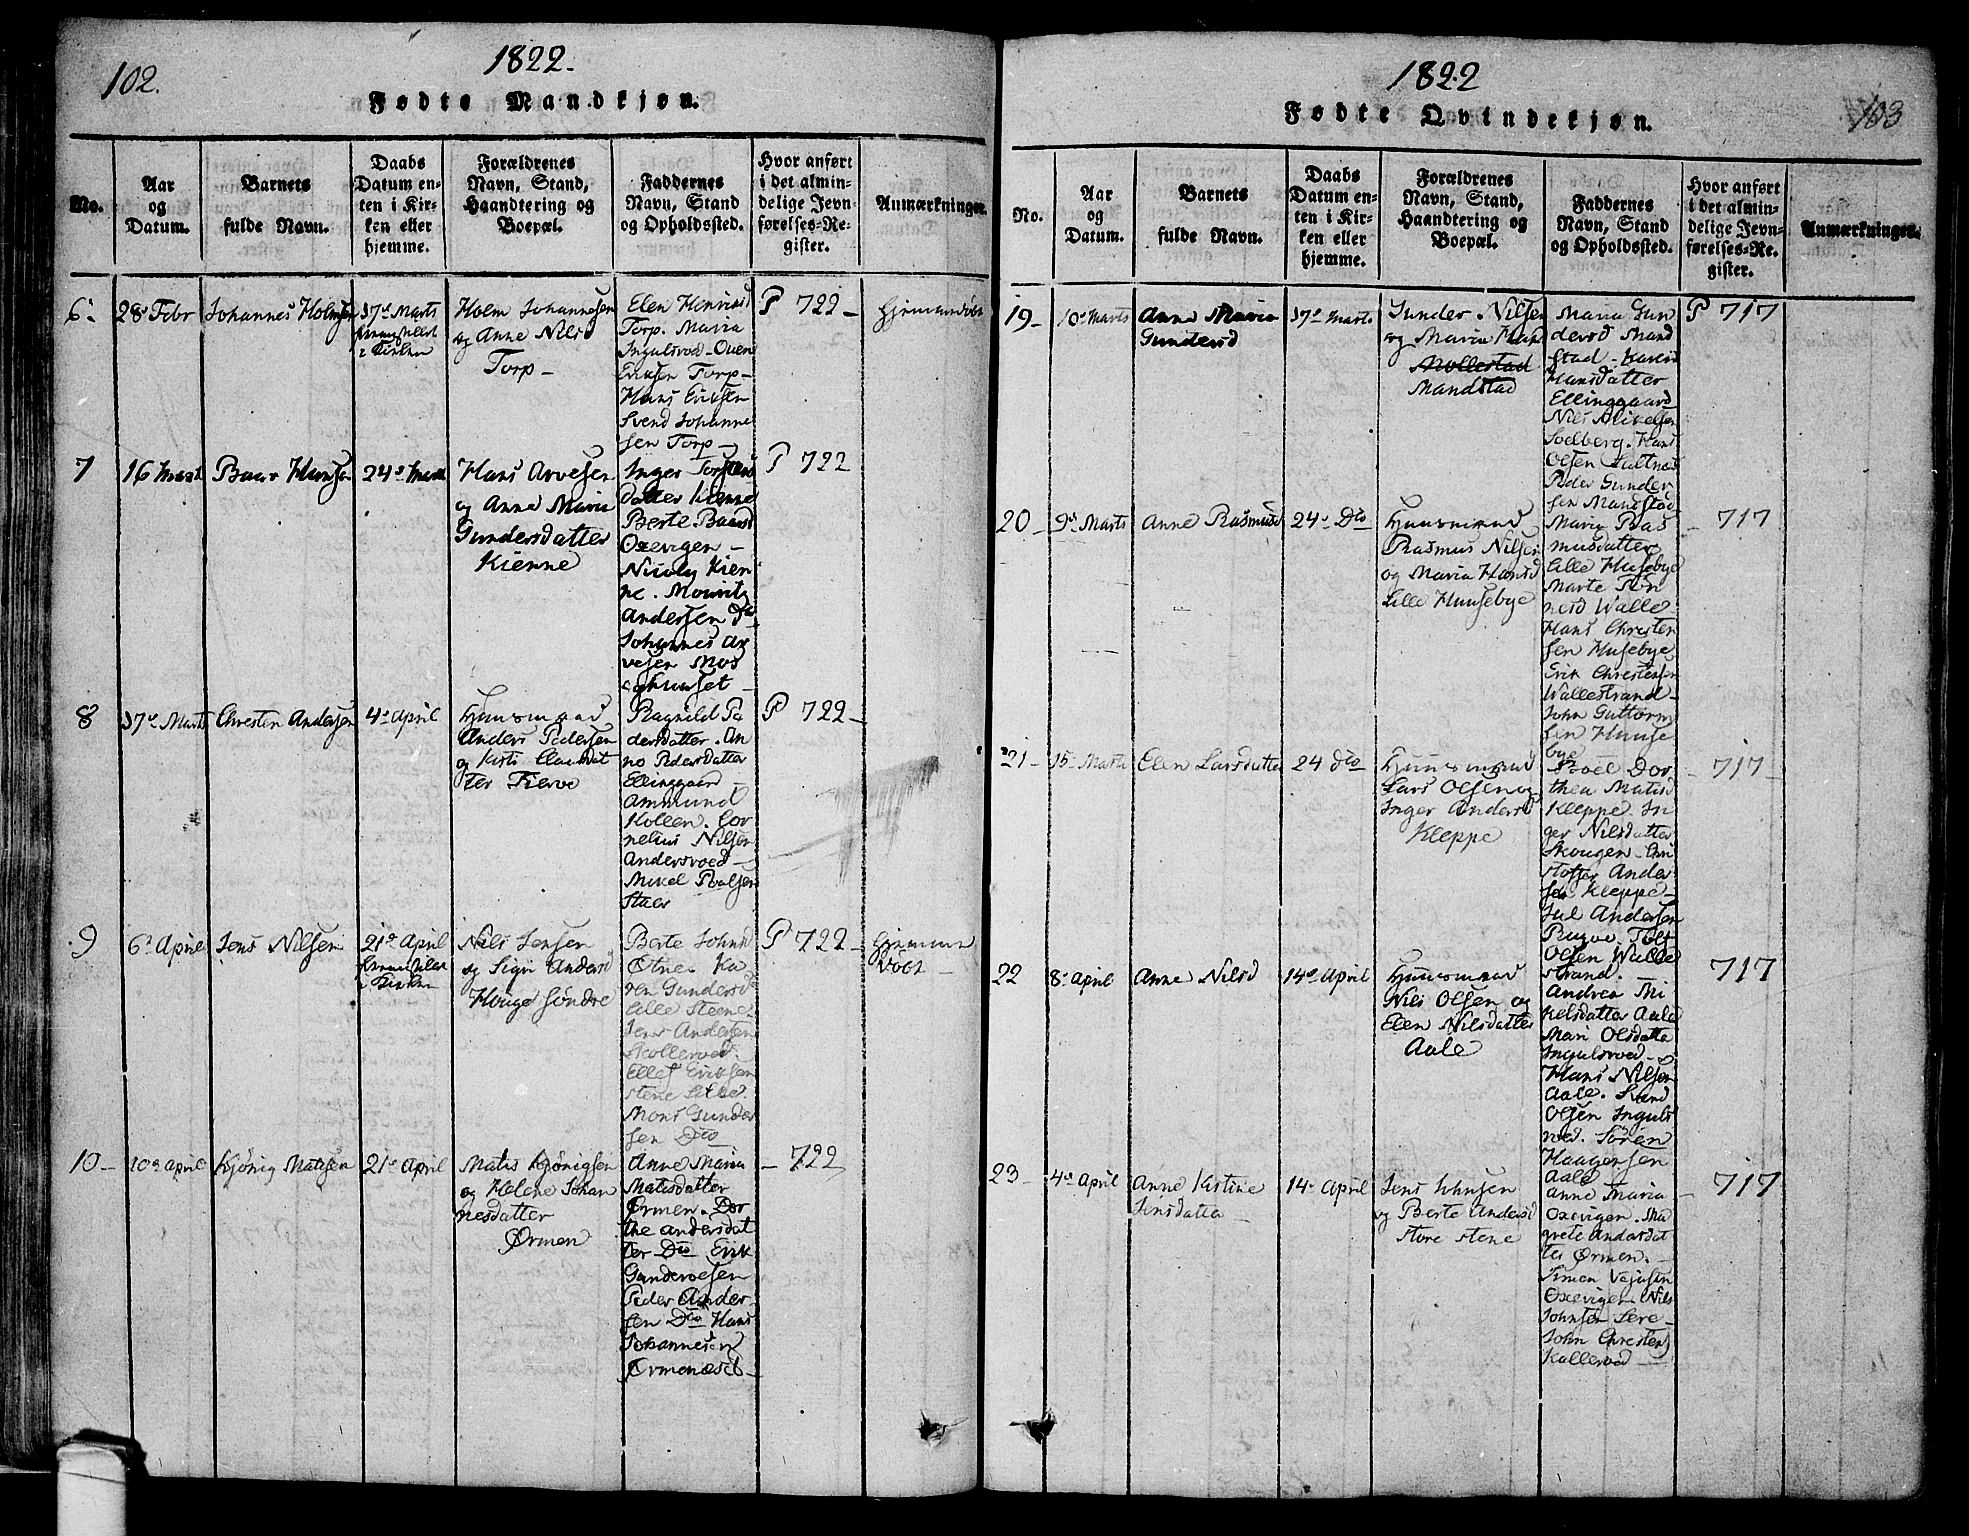 102.
1822.
Fødte Mandkjøn.
No.
Aar
og
Datum.
Barnets
fulde Navn.
Daabs
Datum en-
ten i Kir-
ken eller
hjemme.
Forældrenes
Navn, Stand,
Haandtering og
Boepæl.
Faddernes
Navn, Stand
og Opholdssted.
Hvor anført
i det almin-
delige Jevn-
førelses-Re-
gister.
Anmærkninger.
6
28 Febr
Johannes Holmsen
17 Marts
i Kirken
Holm Johannesen
og Anne Nilsd
Torp
Elen Henriksd
Torp. Maria
Ingulsroed - Ouen
Eriksen Torp -
Hans Eriksen
Svend Johanne
sen Torp -
P 722 -
Hjemmedøbt
7
16 Marts
Baar Hansen
24 Marts
Hans Arvesen
og Anne Maria
Gundersdatter
Kienne
Inger Torstens
datter Kienne
Berte Baarsd
Oxevigen -
Nicolay Kien
ne. Mouritz
Andersen do
Johannes Ar
vesen Mos
eghuuset -
P 722
8
17 Marts
Chresten Andersen
4 April
Huusmand
Anders Pedersen
og Kirsti Clausdat
ter Fierve
Ragnild Pe
dersdatter. An
ne Pedersdatter
Ellinggaard
Ammund
Kollen. Cor
nelius Nilsen
Andersroed -
Mikel Poalsen
P 722 -
9
6 April
Jens Nilsen
21 April
i Kirken
Nils Jensen
og Sigri Andersd
Houge søndre
Berte Johnsd
Ka
ren Gundersd
Lille Steene
Jens Andersen
Skolleroed
Ellef Eriksen
Stene Lille
Mons Gunder
sen Do
P 722 -
Hjemme
døbt -
10 -
10 April
Kjönig Matisen
21 April
Matis Kjönigsen
og Helene Johan
nesdatter
Ørmen
Anne Maria
Matisdatter
Ørmen. Dor
the Andersdat
ter Do Erik
Gundersen
Peder Ander
sen Do Hans
Johannesen
Ørmenæset -
- 722
103
1822
Fødte Qvindekjøn.
No.
Aar
og
Datum.
Barnets
fulde Navn.
Daabs
Datum en-
ten i Kir-
ken eller
hjemme.
Forældrenes
Navn, Stand,
Haandtering og
Boepæl.
Faddernes
Navn, Stand
og Opholdssted.
Hvor anført
i det almin-
delige Jevn-
førelses-Re-
gister.
Anmærkninger.
19 -
10 Marts
Anne Maria
Gundersd
17 Marts
Gunder Nilsen
og Maria Hansd
Mollestad
Mandstad
Maria Gun
dersd Mand
stad - Karen
Hansdatter
Ellinggaard
Nils Mikelsen
Soelberg. Hans
Olsen Hultnæs
Peder Gunder
sen Mandstad
P 717
20 -
9 Marts
Anne Rasmusd
24 Do
Huusmand
Rasmus Nilsen
og Maria Hansd
Lille Huusebye
Maria Ras
musdatter
Lille Husebye
Marte Tøn
nesd Walle
Hans Chresten
sen Husebye
Erik Chrestensen
Wallestrand
John Guttorm
sen Huuse
bye
- 717
21 -
15 Marts
Elen Larsdatter
24 Do
Huusmand
Lars Olsen og
Inger Andersd
Kleppe
Joel Dor
thea Matisd
Kleppe. In
ger Nilsdatter
Skougen - Chri
stoffer Ander
sen Kleppe -
Juel Andersen
Olsen Walle
strand.
- 717 -
22
8 April
Anne Nilsd
14 April
Huusmand
Nils Olsen og
Elen Nilsdatter
Aale
Andrea Mi
kelsdatter Aale
Mari Olsdatter
Ingulsroed -
Hans Nilsen
Aale.
Olsen Inguls
roed. Søren
Haagensen
Aale
717
23 -
4 April
Anne Kistine
Jensdatter
14 April
Jens Johnsen
og Berte Andersd
Store Stene
Anne Maria
Oxevigen. Ma
grete Andersdat
ter Ørmen. -
Simen
Oxevigen. Nils
Johnsen
John Chrestens
Kalleroed -
- 717